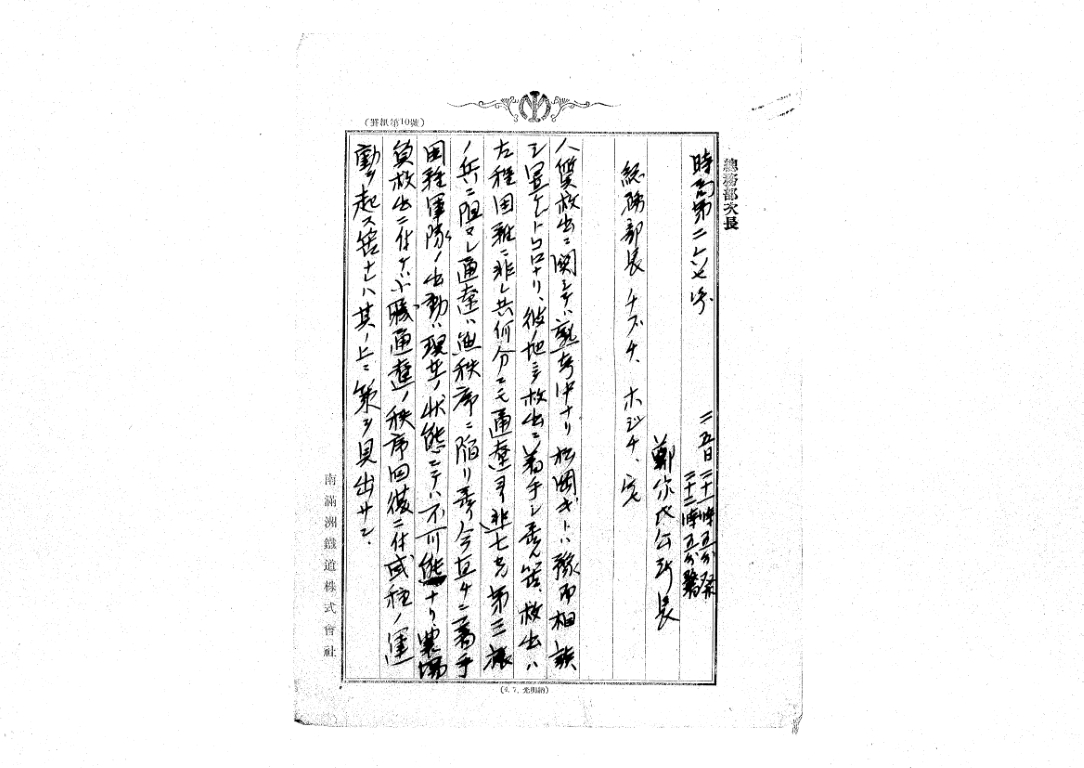 (野紙第10號)
總務部次長
時局第二六七号
二五日 二十一時五分發
二十二時五分着
鄭家屯公所長
総務部長 チズチ、ホジチ、宛
人質救出ニ関シテハ熟考中ナリ 松岡ギートハ豫而相談
シ置ケルトコロナリ、彼ノ地ニテ救出ニ着手シ居ル筈、救出ハ
左程困難ニ非レ共何分ニモ通遼ヨリ非七ヶ 第三旅
ノ兵ニ阻マレ通遼ハ無秩序ニ陥リ居リ今直チニ着手
困難軍隊ノ出動ハ現在ノ状態ニテハ不可能ナリ 農場
員救出ニ付テハ小職通遼ノ秩序回復ニ付或種ノ運
動ヲ起ス筈ナレハ其ノ上ニ策ヲ見出サン、
南滿洲鐵道株式會社